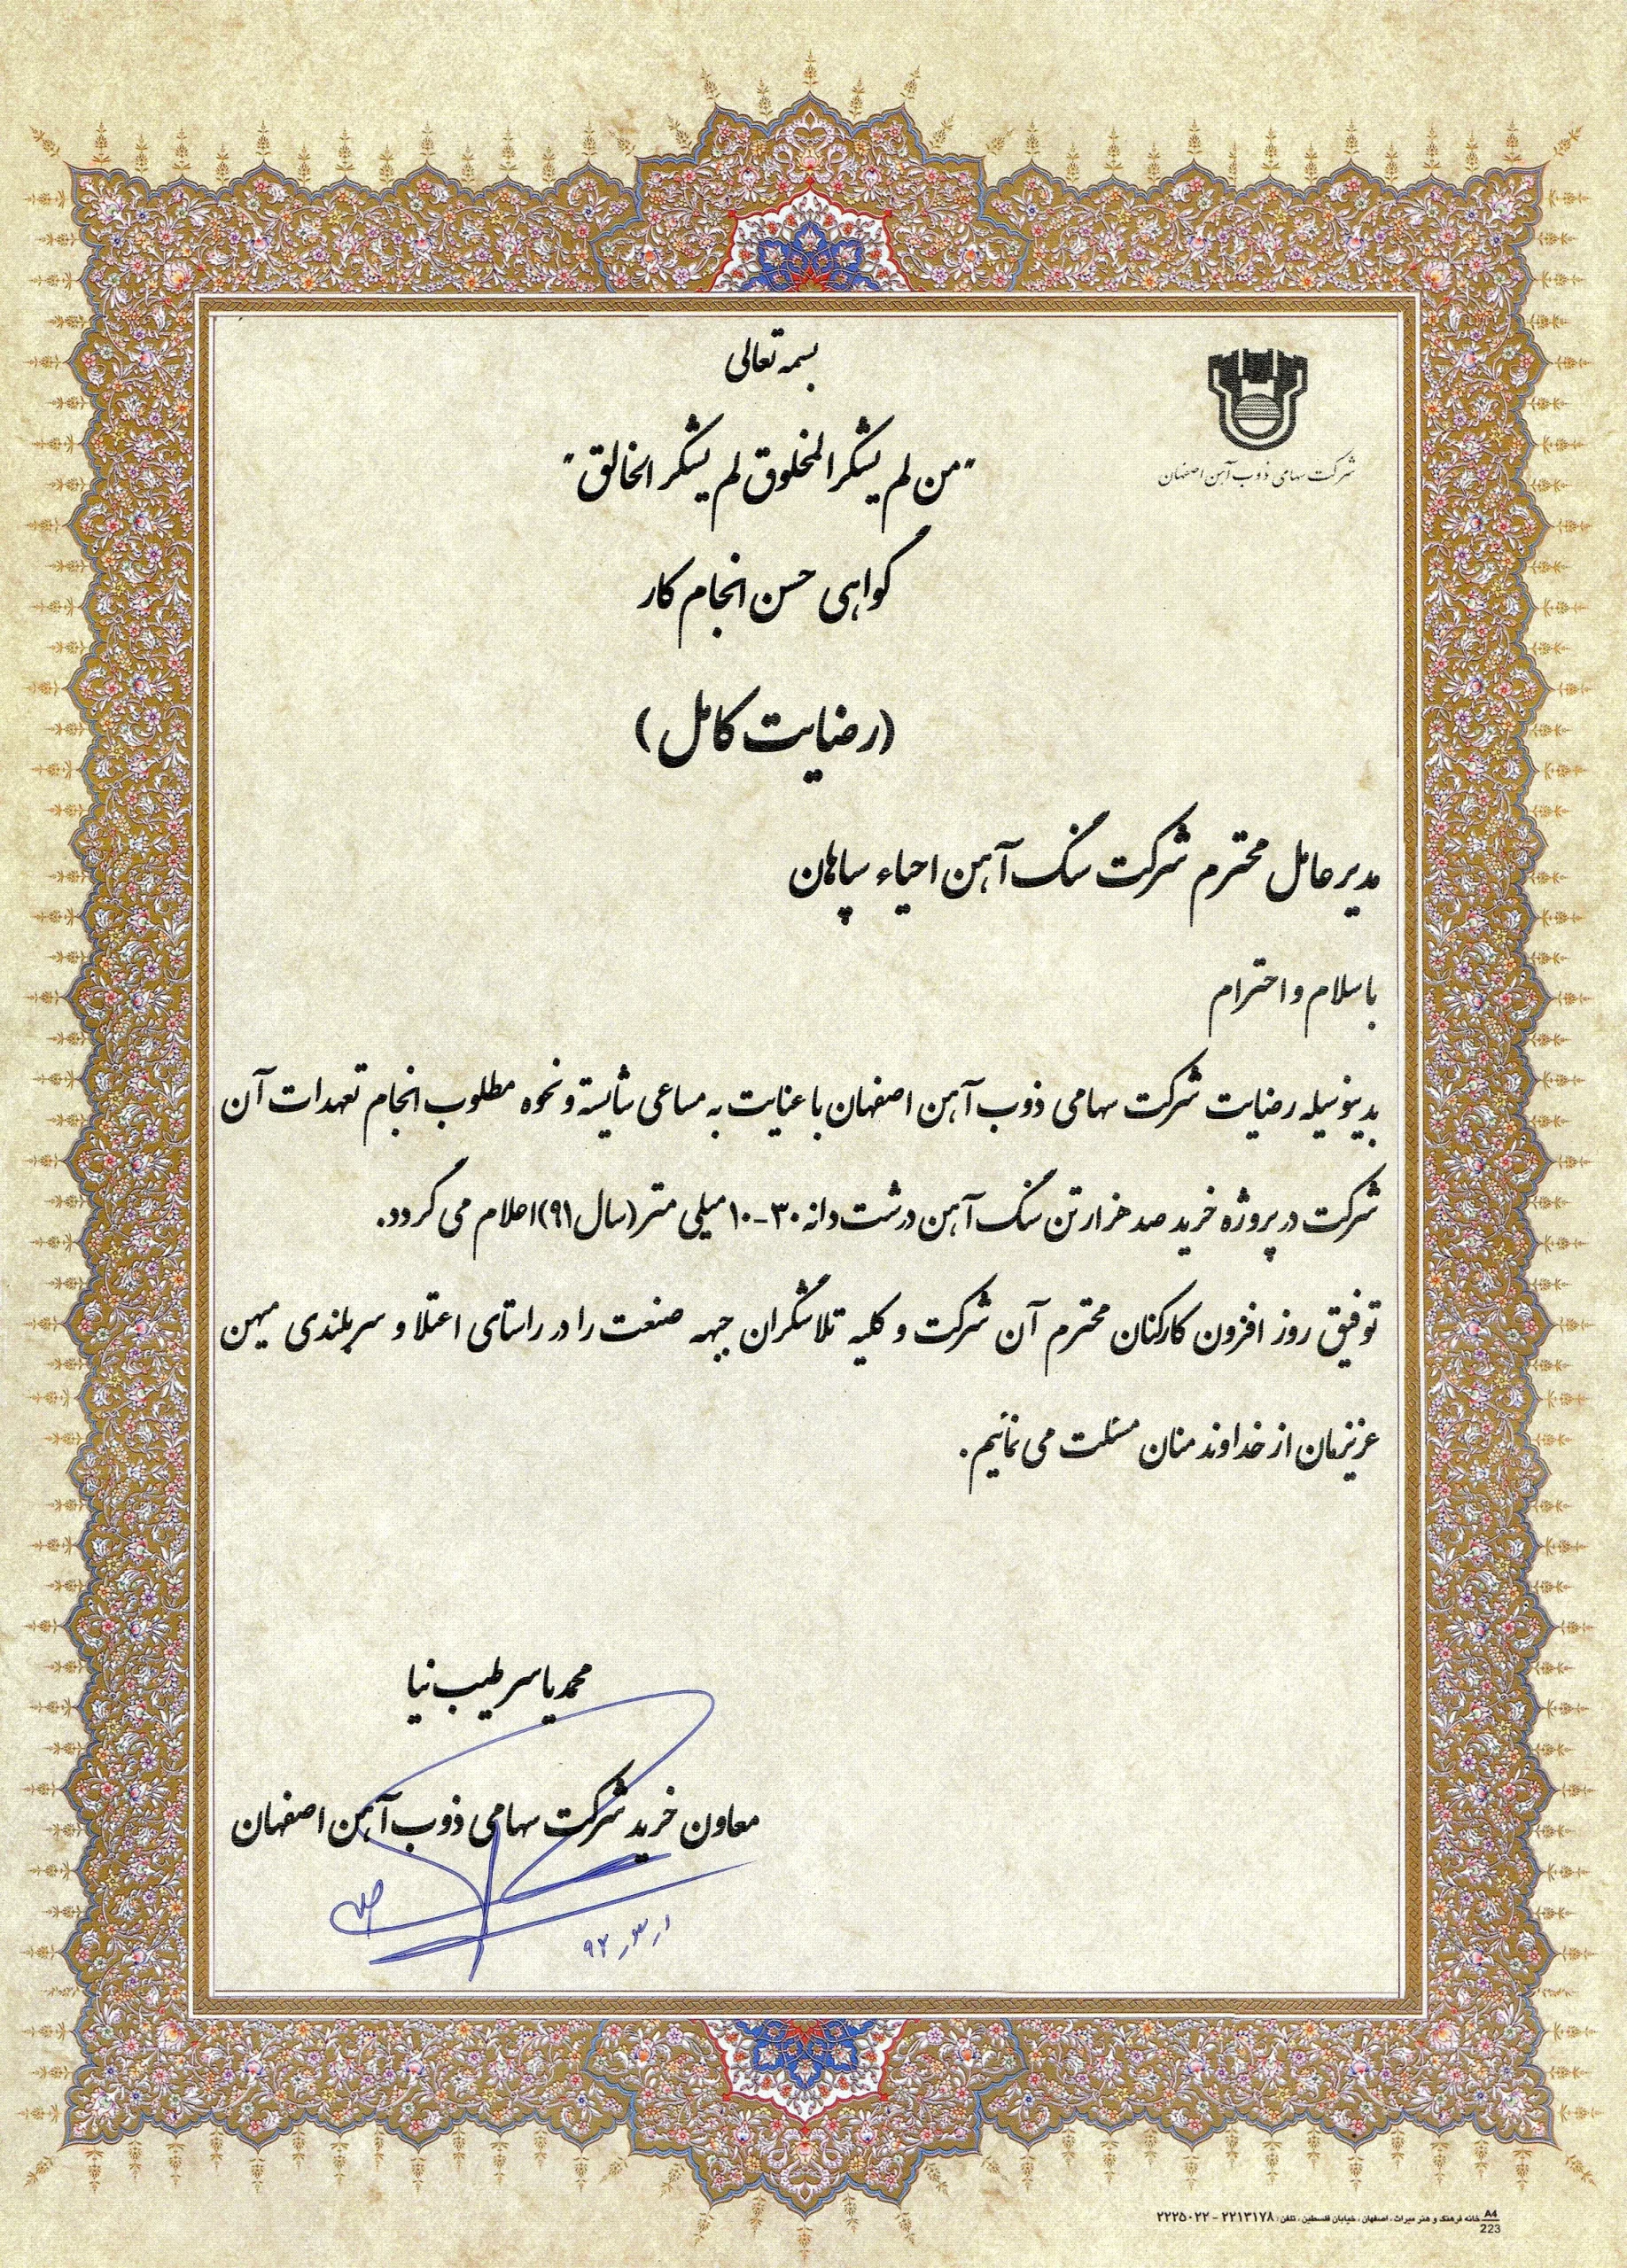 بسمه تعالی
شرکت سهامی ذوب آهن اصفهان
"من لم یشکر المخلوق لم یشکر الخالق"
گواهی حسن انجام کار
(رضایت کامل)
مدیر عامل محترم شرکت سنگ آهن احیاء سپاهان
با سلام و احترام
بدینوسیله رضایت شرکت سهامی ذوب آهن اصفهان با عنایت به مساعی شایسته و نحوه مطلوب انجام تعهدات آن
شرکت در پروژه خرید صد هزار تن سنگ آهن درشت دانه ۳۰-۱۰ میلی متر (سال ۹۱) اعلام می گردد.
توفیق روز افزون کارکنان محترم آن شرکت و کلیه تلاشگران جبهه صنعت را در راستای اعتلا و سربلندی میهن
عزیزمان از خداوند منان مسئلت می نمائیم.
محمد یاسر طیب نیا
معاون خرید شرکت سهامی ذوب آهن اصفهان
A4 خانه فرهنگ و هنر میراث، اصفهان، خیابان فلسطین، تلفن: ۲۲۱۳۱۷۸ - ۲۲۲۵۰۲۲
223